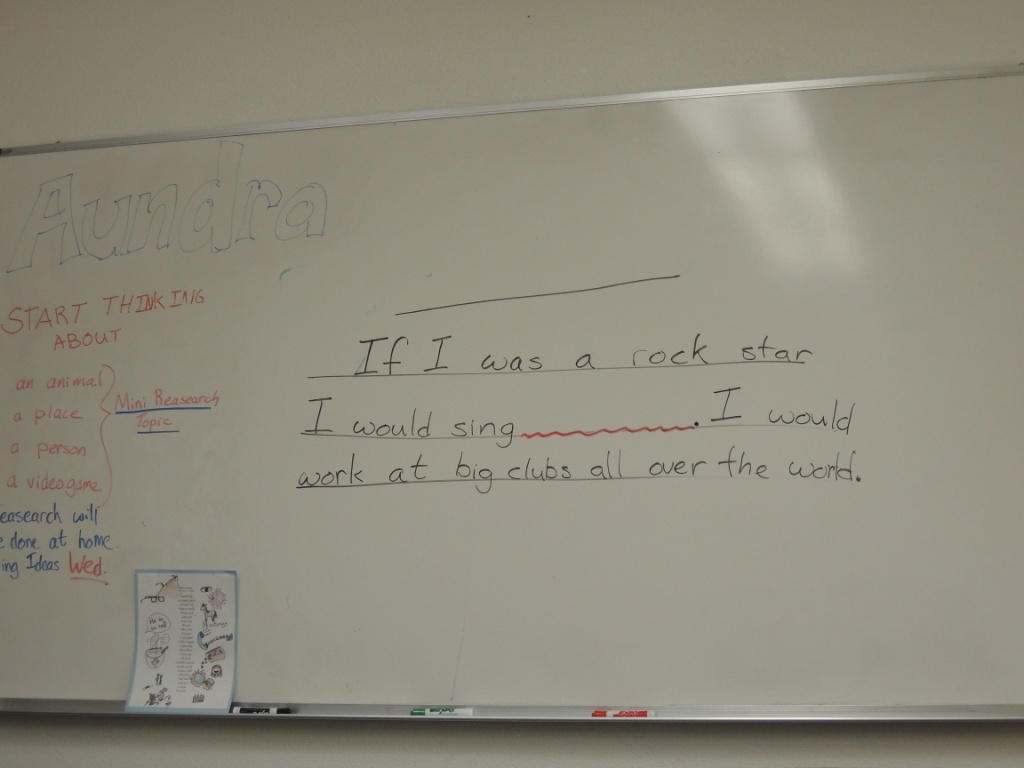 Aundra
START THINKING
ABOUT
an animal
a place
a person
a videogame
Mini Reasearch
Topic
easearch will
e done at home.
ing Ideas Wed.
If I was a rock star
I would sing . I would
work at big clubs all over the world.